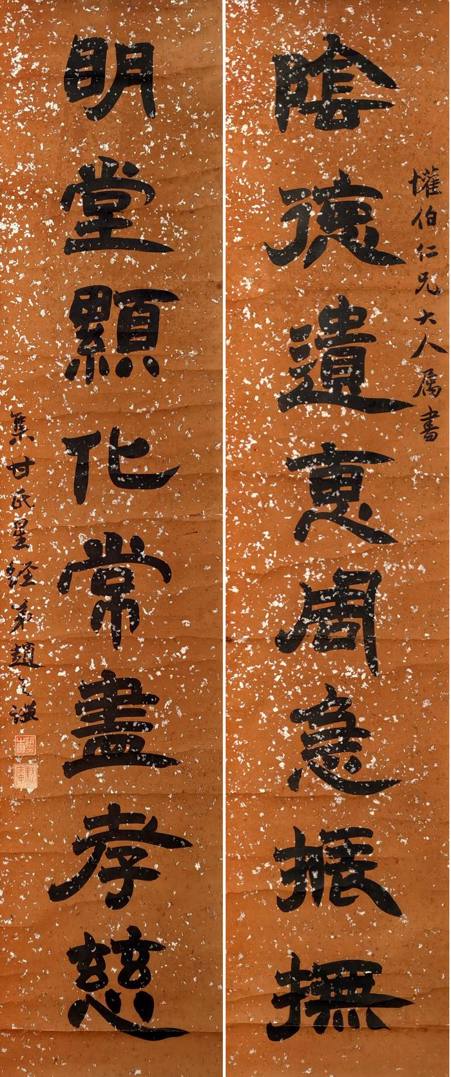 懽伯仁兄大人属書
陰德遺恵周急振撫
眀堂顯化常盡孝慈
集甘氏星經弟趙之謙